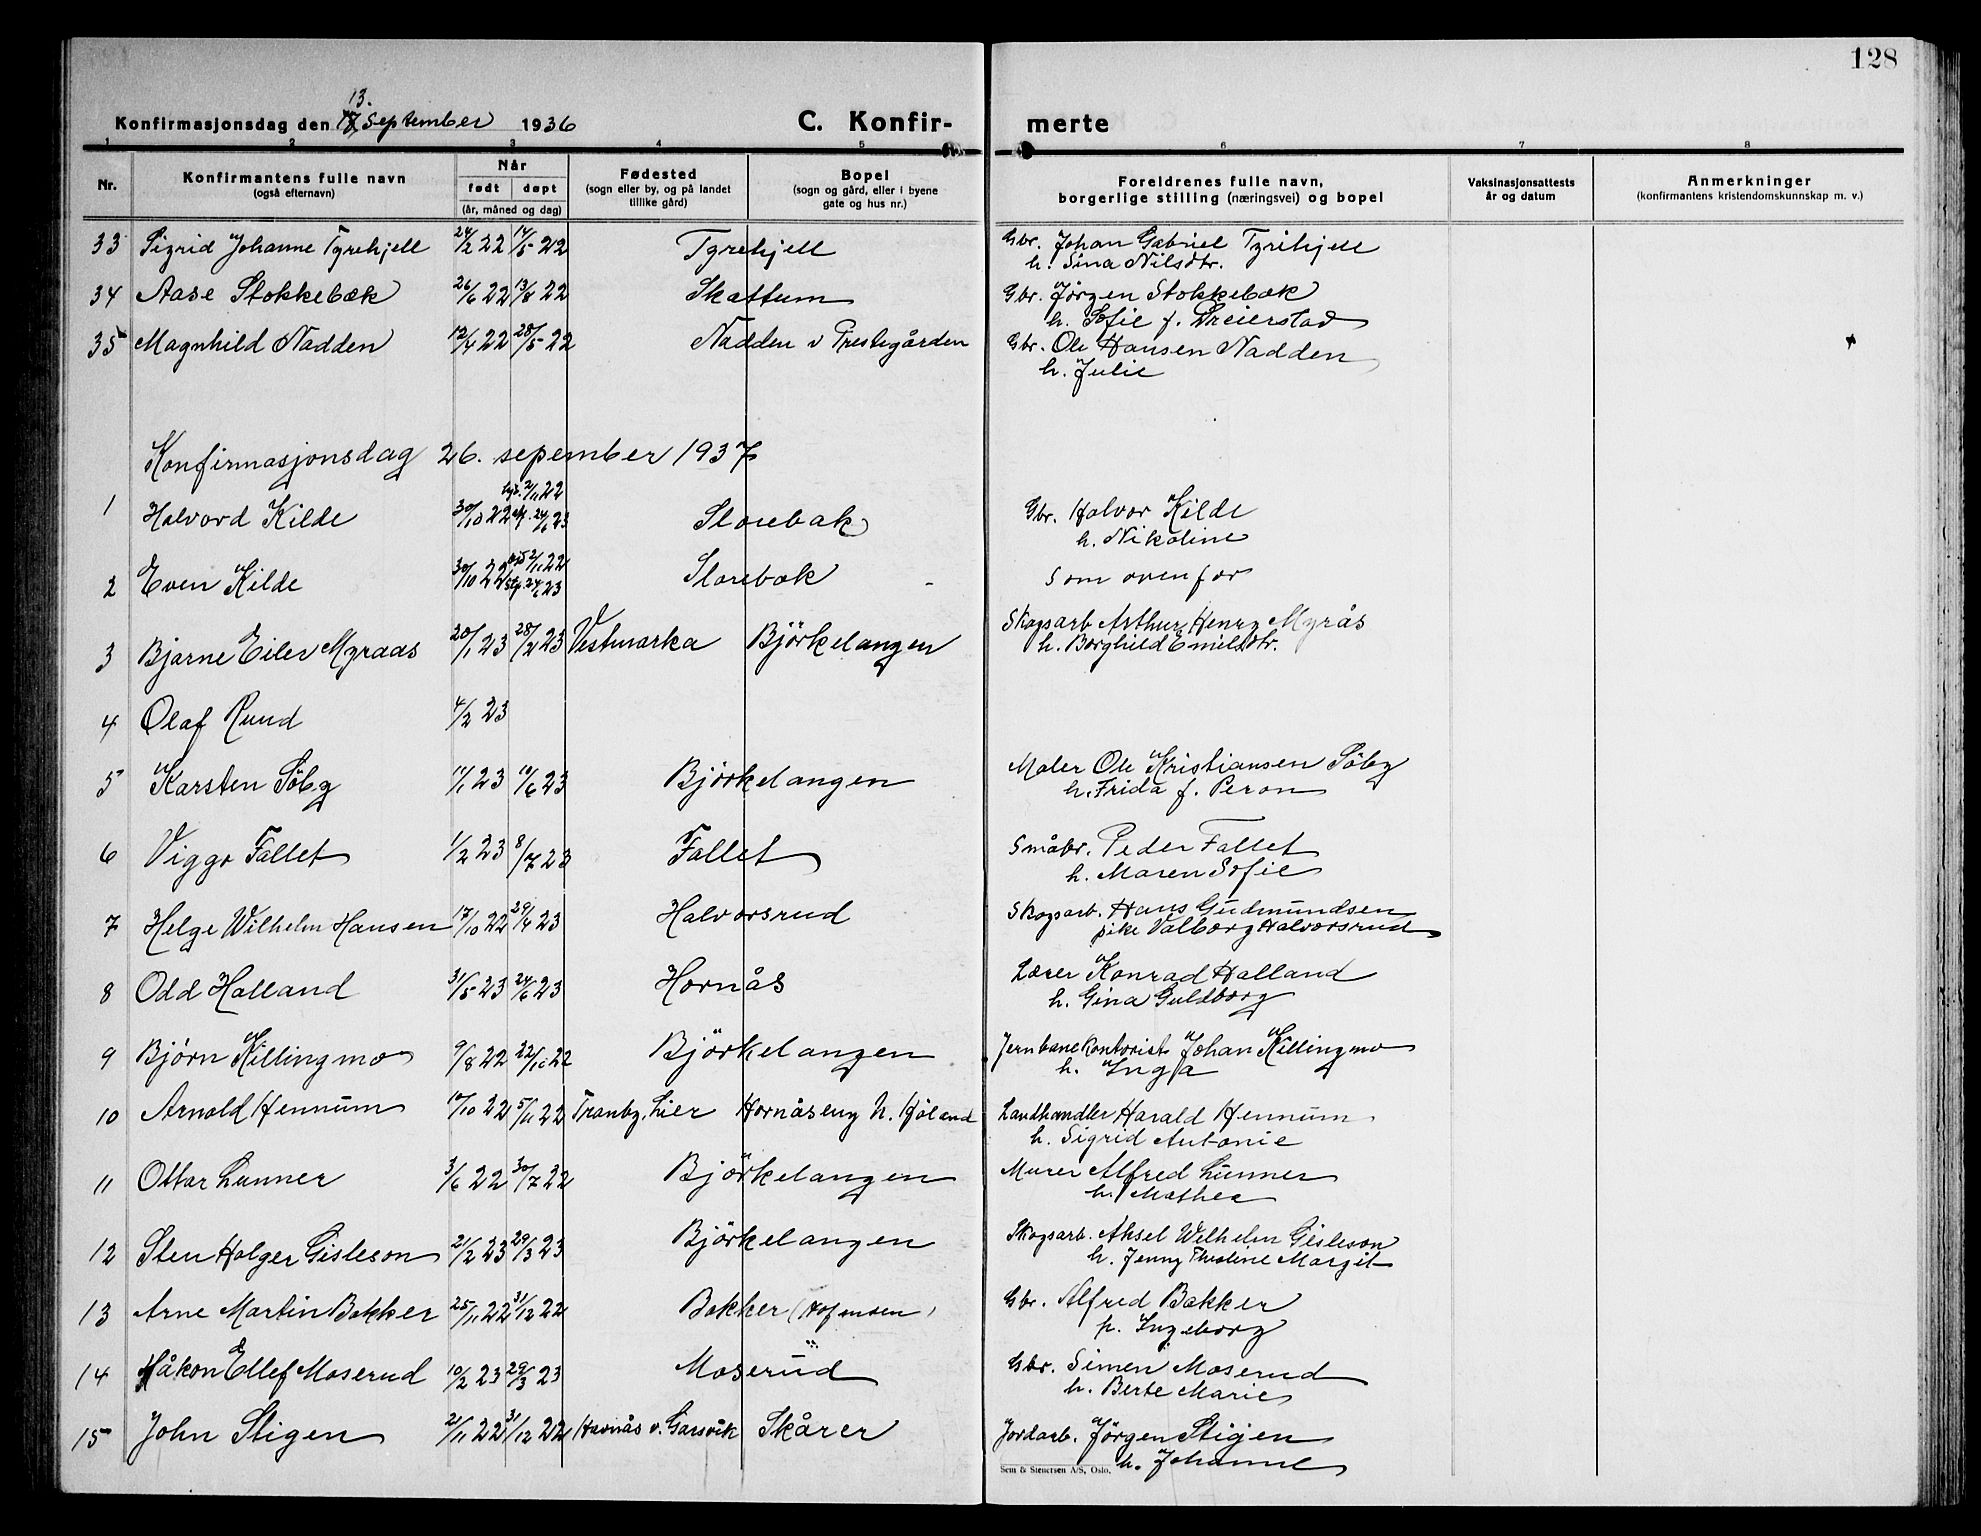 128
13.
Konfirmasjonsdag den September 1936
C. Konfir- merte
1 2 3 4 5 6 7 8
Nr. Konfirmantens fulle navn (også efternavn) Når født døpt (år, måned og dag) Fødested (sogn eller by, og på landet tillike gård) Bopel (sogn og gård, eller i byene gate og hus nr.) Foreldrenes fulle navn, borgerlige stilling (næringsvei) og bopel Vaksinasjonsattests år og datum Anmerkninger (konfirmantens kristendomskunnskap m. v.)
33 Sigrid Johanne Tyrehjell 24/2 22 14/5 22 Tyrehjell Gbr. Johan Gabriel Tyrihjell
h. Sina Nilsdtr.
34 Aase Stokkebæk 26/6 22 13/8 22 Skattum Gbr. Jörgen Stokkebæk
h. Sofie f. Dreierstad
35 Magnhild Nadden 12/4 22 28/5 22 Nadden v Prestegården Gbr. Ole Hansen Nadden
h. Julie
Konfirmasjonsdag 26. sepember 1937
2/11 22
1 Halvord Kilde 30/10 22 24/6 23 Storebæk Gbr. Halvor Kilde
h. Nikoline
2/11 22
2 Even Kilde 30/10 22 24/6 23 Storebæk Som ovenfor
3 Bjarne Eilev Myraas 20/1 23 28/2 23 Vestmarka Björkelangen Skogsarb Arthur Henry Myrås
h. Borghild Emilsdtr.
4 Olaf Ruud 4/2 23
5 Karsten Söby 11/1 23 10/6 23 Björkelangen Maler Ole Kristiansen Söby
h. Frida f. Person
6 Viggo Fallet 1/2 23 8/7 23 Fallet Småbr. Peder Fallet
h. Maren Sofie
7 Helge Wilhelm Hansen 17/10 22 29/4 23 Halvorsrud Skogsarb. Hans Gudmundsen
pike Valborg Halvorsrud
8 Odd Halland 31/5 23 24/6 23 Hornås Lærer Konrad Halland
h. Gina Guldborg
9 Björn Killingmo 9/8 22 22/10 22 Björkelangen Jernbanekontorist Johan Killingmo
h. Inga
10 Arnold Hennum 10/10 22 5/11 22 Tranby, Lier Hornåseng N. Höland Landhandler Harald Hennum
h. Sigrid Antonie
11 Ottar Lunner 3/6 22 30/7 22 Björkelangen Murer Alfred Lunner
h. Mathea
12 Sten Holger Gisleson 21/2 23 29/3 23 Björkelangen Skogsarb. Aksel Wilhelm Gisleson
h. Jenny Margit
13 Arne Martin Bakker 25/11 22 31/12 22 Bakker Gbr. Alfred Bakker
p. Ingeborg
14 Håkon Ellef Moserud 10/2 23 29/3 23 Moserud Gbr. Simen Moserud
h. Berte Marie
15 John Stigen 21/11 22 31/12 22 Havnås v. Skårer Jordarb. Jörgen Stigen
h. Johanne
Sem & Stenersen A/S, Oslo.